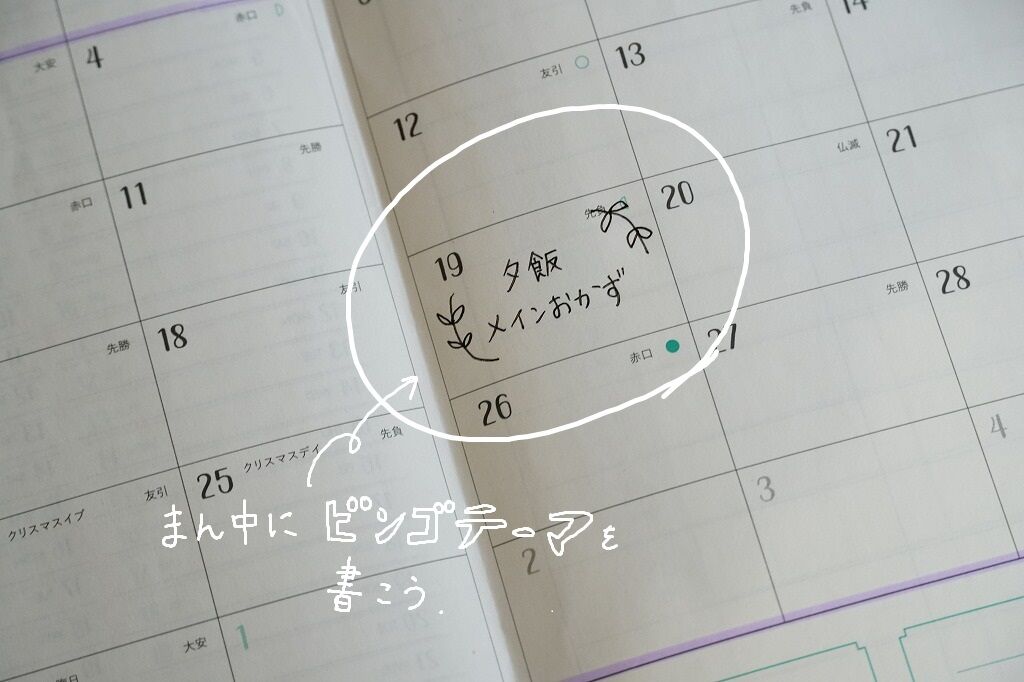 赤口
4
大安
友引
13
先負
14
12
先勝
11
赤口
仏滅
21
先負
20
19
夕飯
メインおかず
友引
18
先勝
先勝
28
赤口
27
26
先負
クリスマスデイ
25
友引
クリスマスイブ
4
3
まん中にビンゴテーマを
書こう.
2
大安
1